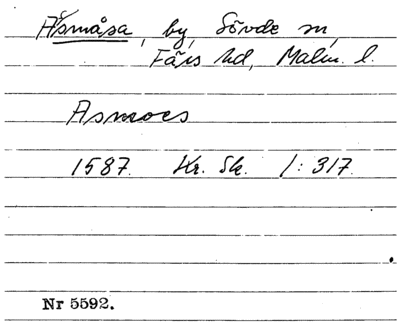 Åsmåsa, by, Sövde sn,
Färs hd, Malm. l.
Asmoes
1587. Kr. Sk. 1:317.
Nr 5592.